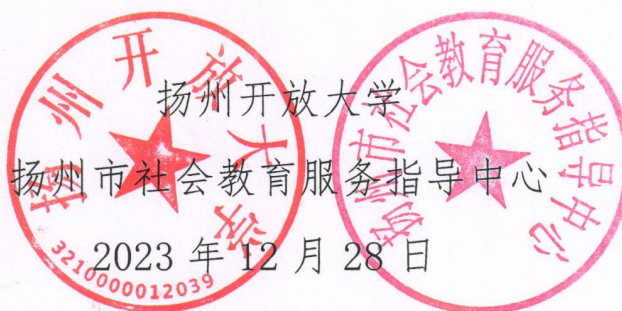 扬州开放大学
扬州市社会教育服务指导中心
2023 年 12 月 28 日
扬州开放大学
3210000012039
扬州市社会教育服务指导中心